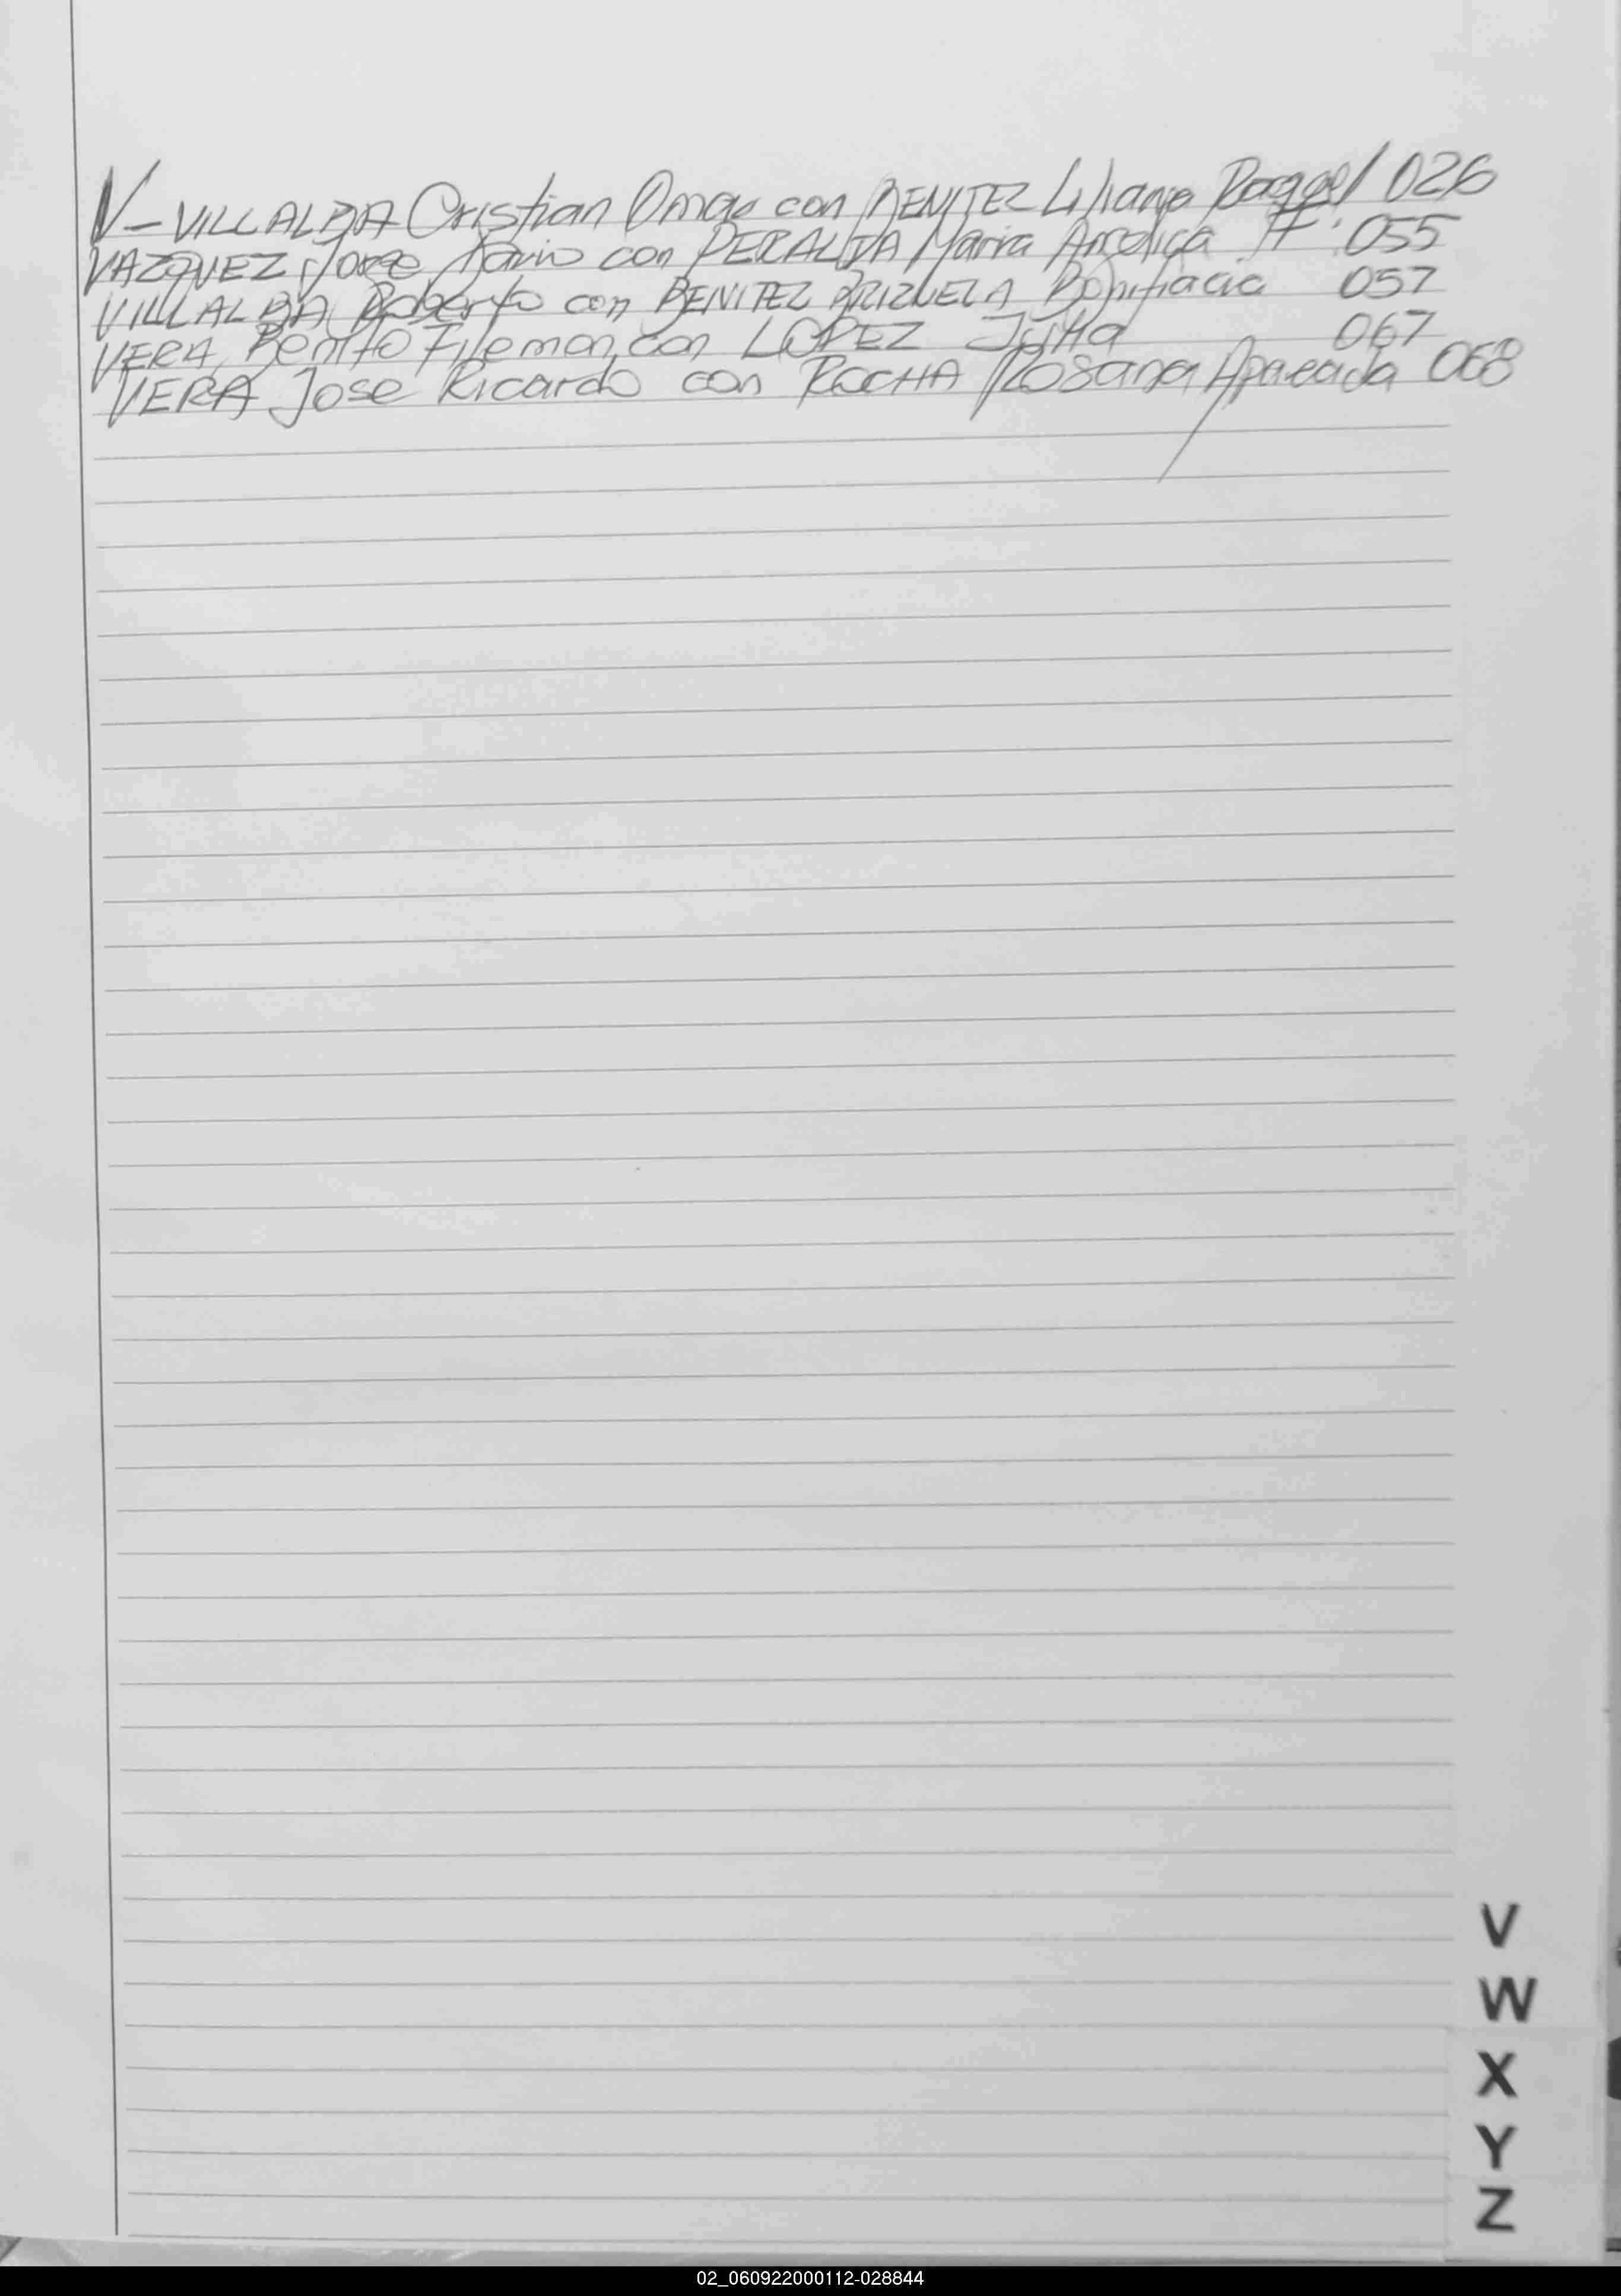 V- VILLALBA Cristian Omar con BENITEZ Liliana Raquel 026
VAZQUEZ Jorge Dario con PERALTA Maria Angelica Fº 055
VILLALBA Roberto con BENITEZ BRIZUELA Bonifacia 057
VERA, Benito Filemon con LOPEZ Julia 067
VERA Jose Ricardo con ROCHA Rosana Aparecida 068
V
W
X
Y
Z
02_060922000112-028844